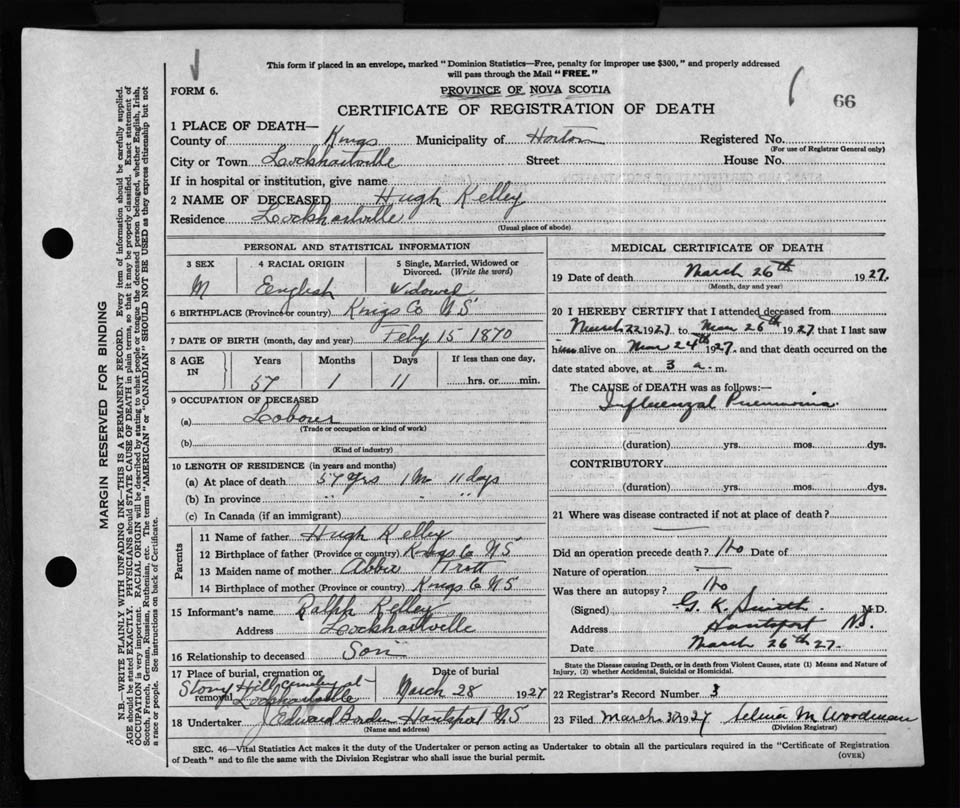 This form if placed in an envelope, marked "Dominion Statistics—Free, penalty for improper use $300," and properly addressed
will pass through the Mail "FREE."
FORM 6.
PROVINCE OF NOVA SCOTIA
66
CERTIFICATE OF REGISTRATION OF DEATH
1 PLACE OF DEATH—
County of Kings Municipality of Horton Registered No.
(For use of Registrar General only)
City or Town Lockhartville Street House No.
If in hospital or institution, give name
2 NAME OF DECEASED Hugh Kelley
Residence Lockhartville
(Usual place of abode)
PERSONAL AND STATISTICAL INFORMATION
3 SEX 4 RACIAL ORIGIN 5 Single, Married, Widowed or Divorced. (Write the word)
M English Widowed
6 BIRTHPLACE (Province or country) Kings Co N S
7 DATE OF BIRTH (month, day and year) Feby 15 1870
8 AGE IN Years Months Days If less than one day,
57 1 11 hrs. or min.
9 OCCUPATION OF DECEASED
(a) Labour
(Trade or occupation or kind of work)
(b)
(Kind of industry)
10 LENGTH OF RESIDENCE (in years and months)
(a) At place of death 57 yrs 1 m 11 days
(b) In province " " "
(c) In Canada (if an immigrant)
Parents
11 Name of father Hugh Kelley
12 Birthplace of father (Province or country) Kings Co N S
13 Maiden name of mother Abbie Trott
14 Birthplace of mother (Province or country) Kings Co N S
15 Informant's name Ralph Kelley
Address Lockhartville
16 Relationship to deceased Son
17 Place of burial, cremation or removal Date of burial
Stony Hill Cemetery at Lockhartville March 28 1927
18 Undertaker Edward Borden Hantsport N S
(Name and address)
MEDICAL CERTIFICATE OF DEATH
19 Date of death March 26th 1927.
(Month, day and year)
20 I HEREBY CERTIFY that I attended deceased from
March 22 1927 to Mar 26th 1927 that I last saw
him alive on Mar 24th 1927. and that death occurred on the
date stated above, at 3 a. m.
The CAUSE of DEATH was as follows:—
Influenzal Pneumonia
(duration) yrs. mos. dys.
CONTRIBUTORY
(duration) yrs. mos. dys.
21 Where was disease contracted if not at place of death?
Did an operation precede death? No Date of
Nature of operation
Was there an autopsy? No
(Signed) G. K. Smith. M.D.
Address Hantsport N.S.
Date March 26th 27.
State the Disease causing Death, or in death from Violent Causes, state (1) Means and Nature of
Injury, (2) whether Accidental, Suicidal or Homicidal.
22 Registrar's Record Number 3
23 Filed March 1927 M Woodman
(Division Registrar)
SEC. 46—Vital Statistics Act makes it the duty of the Undertaker or person acting as Undertaker to obtain all the particulars required in the "Certificate of Registration
of Death" and to file the same with the Division Registrar who shall issue the burial permit.
(OVER)
MARGIN RESERVED FOR BINDING
N.B.—WRITE PLAINLY WITH UNFADING INK—THIS IS A PERMANENT RECORD. Every item of information should be carefully supplied.
AGE should be stated EXACTLY. PHYSICIANS should STATE CAUSE OF DEATH in plain terms, so that it may be properly classified. Exact statement of
OCCUPATION is very important. RACIAL ORIGIN will be described by stating to what people or tongue the deceased person belonged, whether English, Irish,
Scotch, French, German, Russian, Ruthenian, etc. The terms "AMERICAN" or "CANADIAN" SHOULD NOT BE USED as they express citizenship but not
a race or people. See instructions on back of Certificate.